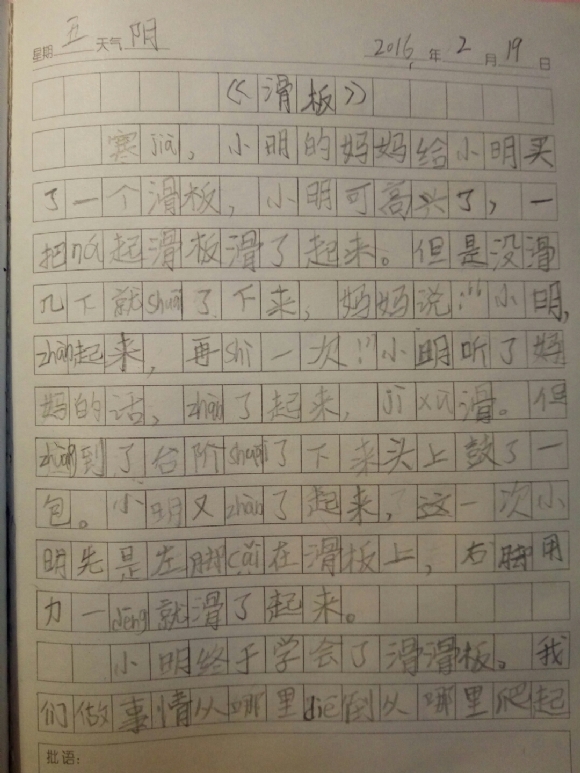 星期 五 天气 阴 2016 年 2 月 19 日
《滑板》
寒jià，小明的妈妈给小明买
了一个滑板，小明可高兴了，一
把ná起滑板滑了起来。但是没滑
几下就shuāi了下来，妈妈说：“小明，
zhàn起来，再shì一次！”小明听了妈
妈的话，zhàn了起来，jì xù滑。但
zhuàng到了台阶shuāi了下来头上鼓了一
包。小明又zhàn了起来，这一次小
明先是左脚cǎi在滑板上，右脚用
力一dēng就滑了起来。
小明终于学会了滑滑板。我
们做事情从哪里diē倒从哪里爬起
批语：